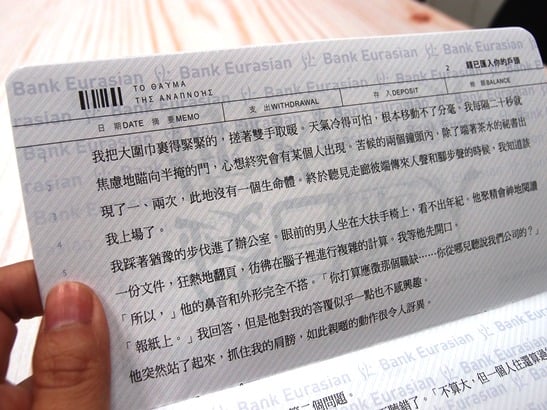 Bank Eurasian Bank Eurasian Bank Eurasian
ΤΟ ΘΑΥΜΑ
ΤΗΣ ΑΝΑΠΝΟΗΣ
2 錢已匯入你的戶頭
日 期DATE 摘 要MEMO 支 出WITHDRAWAL 存 入DEPOSIT 結 餘BALANCE
我把大圍巾裹得緊緊的，搓著雙手取暖。天氣冷得可怕，根本移動不了分毫。我每隔二十秒就
焦慮地瞄向半掩的門，心想終究會有某個人出現。苦候的兩個鐘頭內，除了端著茶水的祕書出
現了一、兩次，此地沒有一個生命體。終於聽見走廊彼端傳來人聲和腳步聲的時候，我知道該
我上場了。
我踩著猶豫的步伐進了辦公室。眼前的男人坐在大扶手椅上，看不出年紀。他聚精會神地閱讀
一份文件，狂熱地翻頁，彷彿在腦子裡進行複雜的計算。我等他先開口。
「所以，」他的鼻音和外形完全不搭。「你打算應徵那個職缺……你從哪兒聽說我們公司的？」
「報紙上。」我回答，但是他對我的答覆似乎一點也不感興趣。
他突然站了起來，抓住我的肩膀，如此親暱的動作很令人訝異。
Bank Eurasian Bank Eurasian
第二個問題。
聽錯了。「不算大，但一個人住還算過